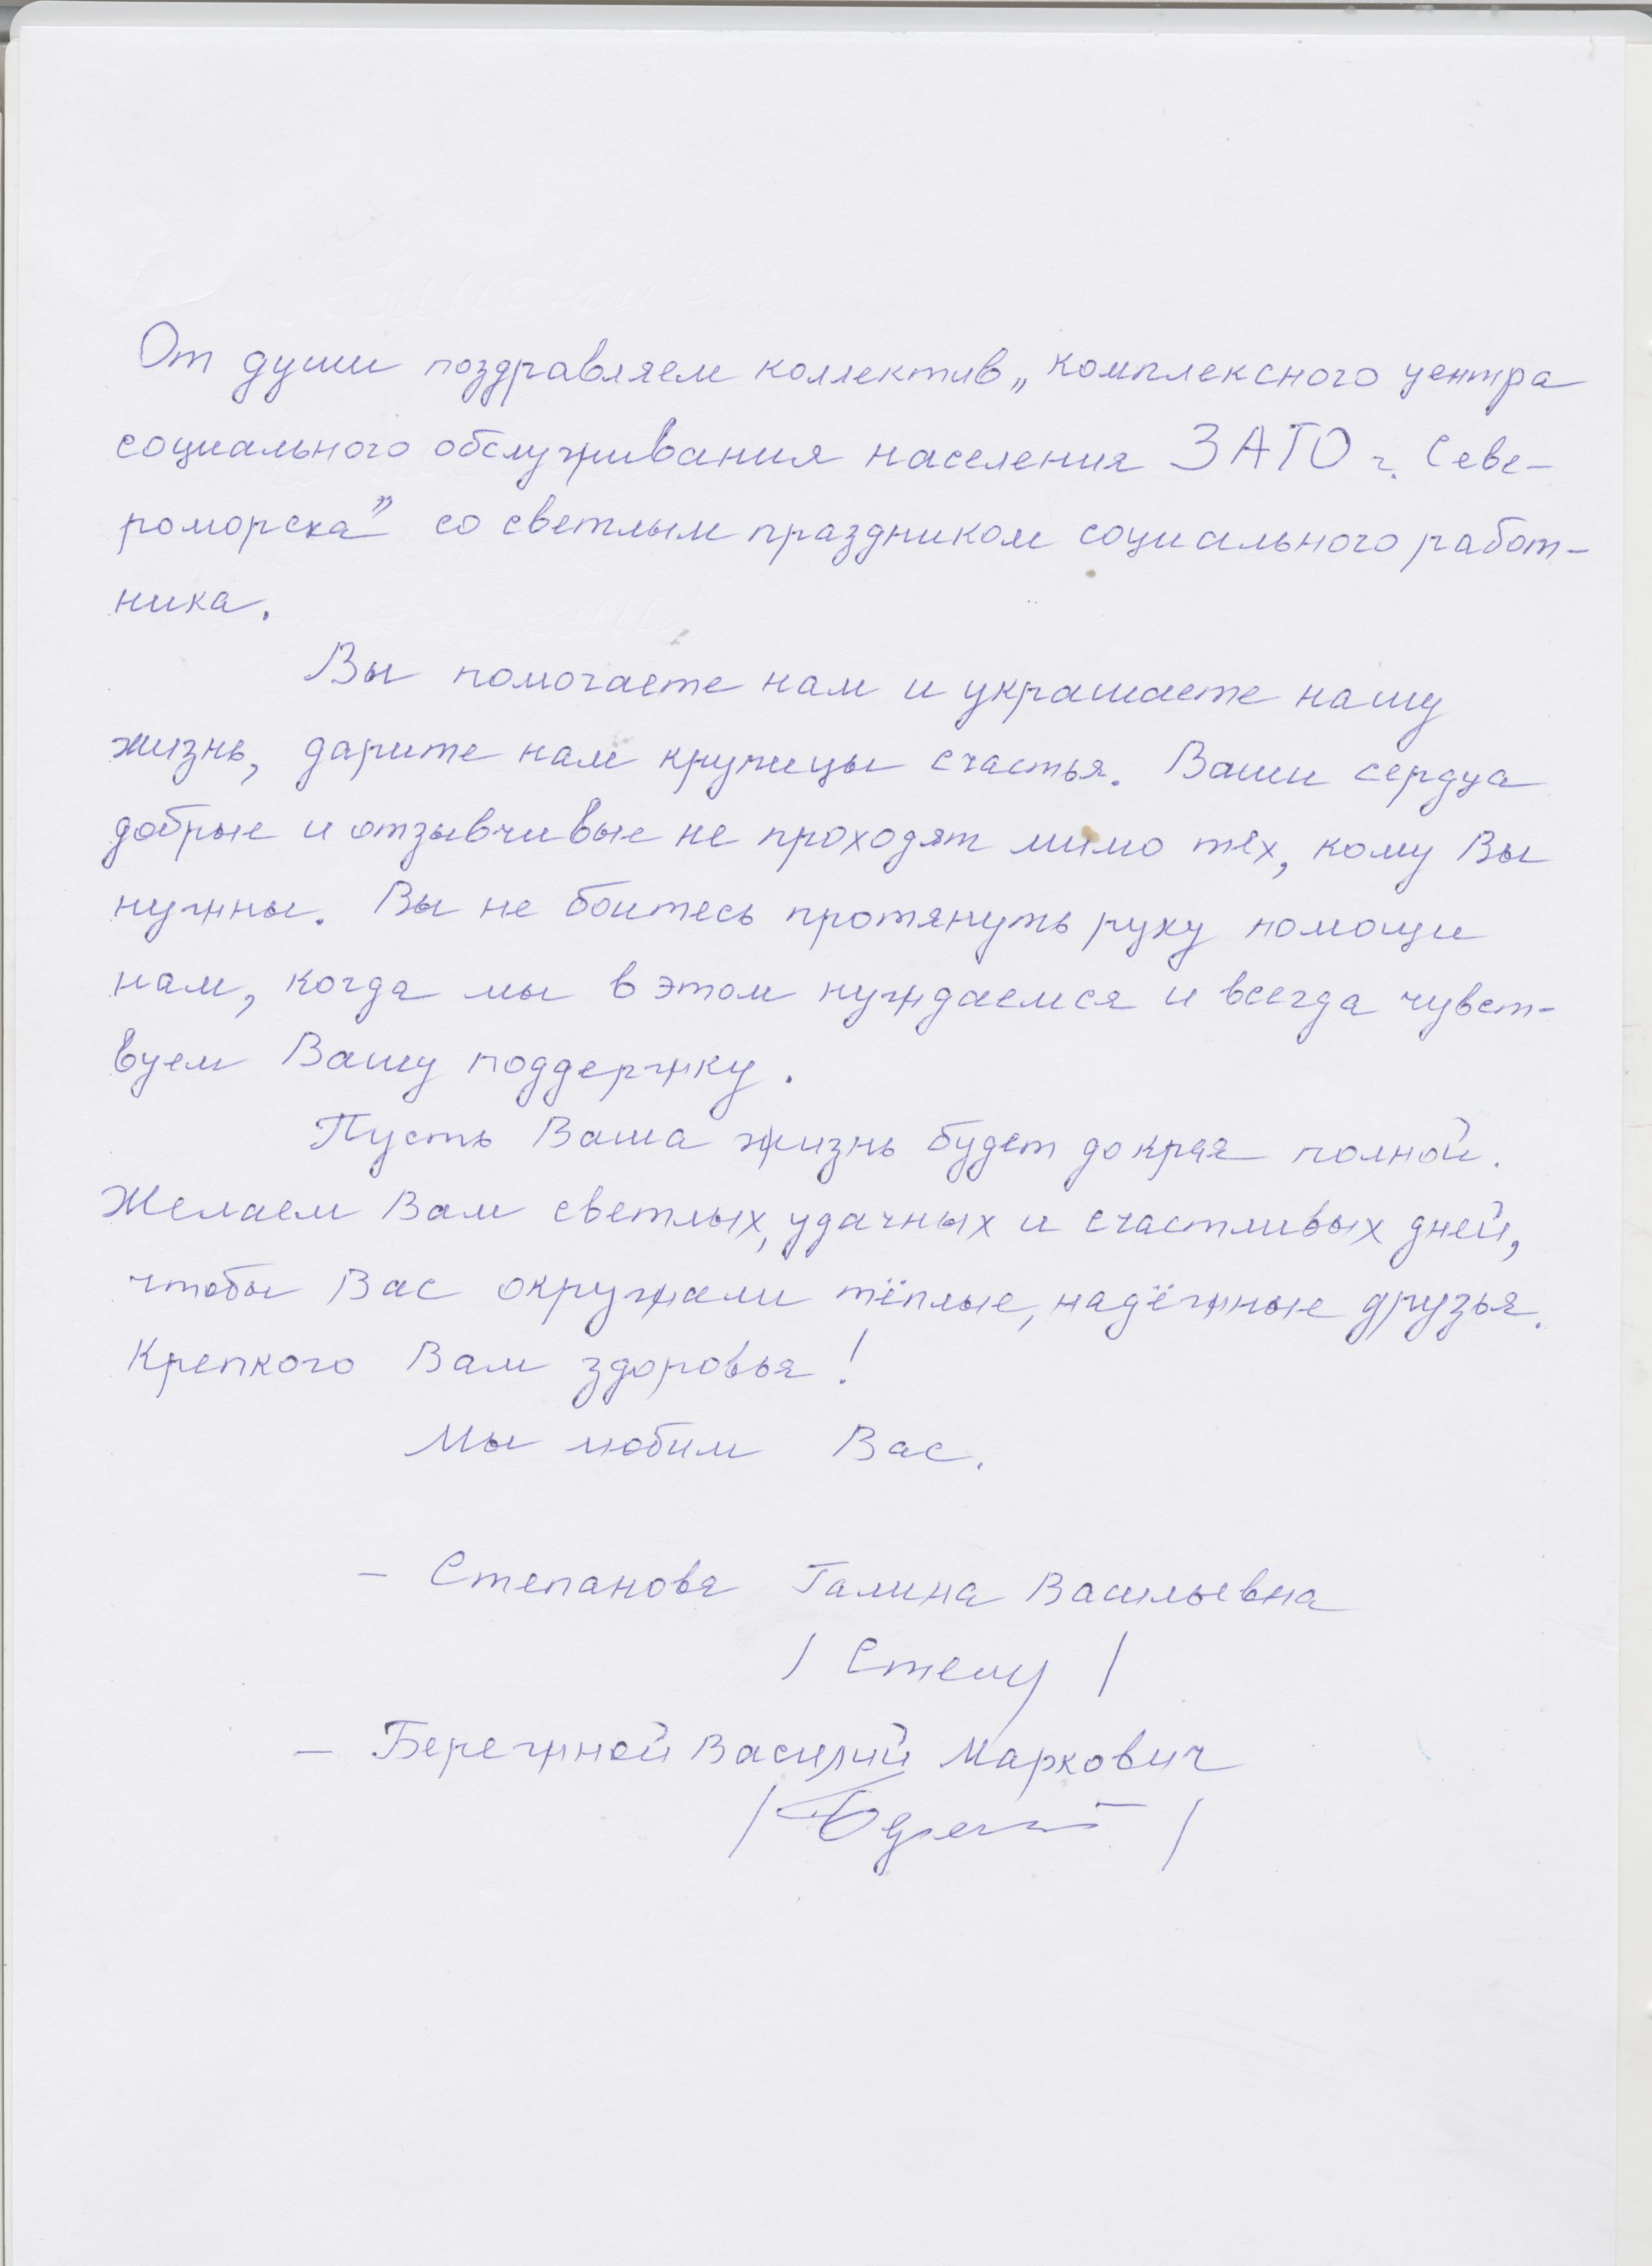 От души поздравляем коллектив „комплексного центра
социального обслуживания населения ЗАТО г. Севе-
роморска” со светлым праздником социального работ-
ника.
Вы помогаете нам и украшаете нашу
жизнь, дарите нам крупицы счастья. Ваши сердца
добрые и отзывчивые не проходят мимо тех, кому Вы
нужны. Вы не боитесь протянуть руку помощи
нам, когда мы в этом нуждаемся и всегда чувст-
вуем Вашу поддержку.
Пусть Ваша жизнь будет до края полной.
Желаем Вам светлых, удачных и счастливых дней,
чтобы Вас окружали тёплые, надёжные друзья.
Крепкого Вам здоровья!
Мы любим Вас.
– Степанова Галина Васильевна
/ /
– Бережной Василий Маркович
/ /